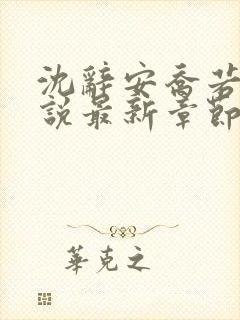 沈辭安喬若
說最新章節
華克之